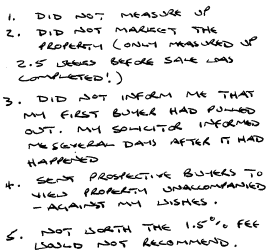 1. DID NOT MEASURE UP
2. DID NOT MARKET THE
PROPERTY (ONLY MEASURED UP
2.5 WEEKS BEFORE SALE WAS
COMPLETED!)
3. DID NOT INFORM ME THAT
MY FIRST BUYER HAD PULLED
OUT. MY SOLICITOR INFORMED
ME SEVERAL DAYS AFTER IT HAD
HAPPENED
4. SENT PROSPECTIVE BUYERS TO
VIEW PROPERTY UNACCOMPANIED
- AGAINST MY WISHES.
5. NOT WORTH THE 1.5% FEE
WOULD NOT RECOMMEND.